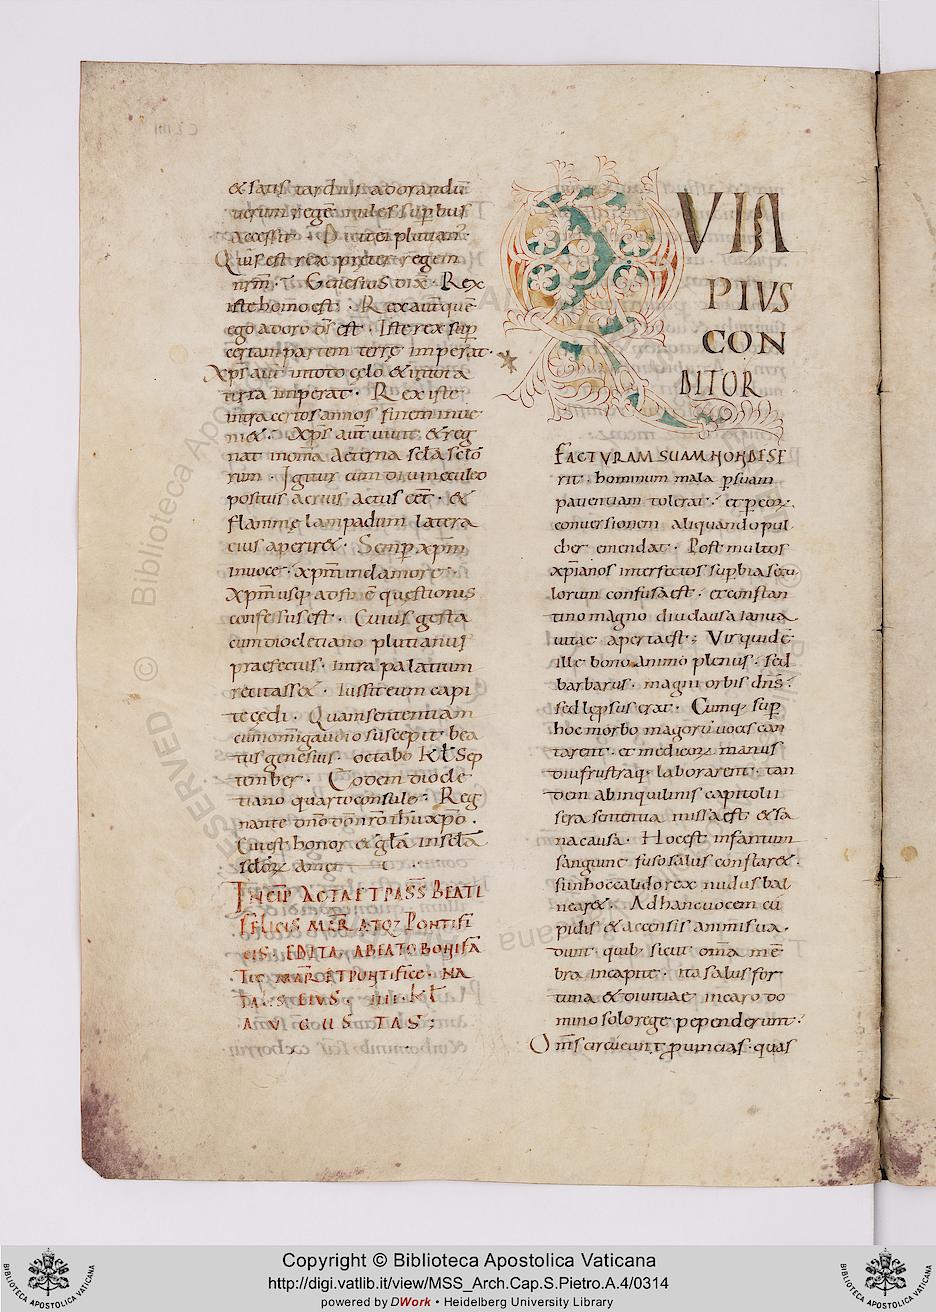 & satis tarduli adorandū
uerum regē miles suꝑbus
accessit · Dicit ei plutian·
Quis est rex preter regem
nrm̄· Genesius dix̄· Rex
iste homo est · Rex aut̄ quē
ego adoro ds̄ est · Iste rex suꝑ
certam partem terrę imperat·
Xp̄s aut̄ in toto cęlo & in tota
terra imperat · Rex iste
intra certos annos finem inue
ni& · Xp̄s aut̄ uiuit & reg
nat in om̄a aeterna scl̄a sclō
rum · Igitur cum diu in eculeo
positus acrius actus eēt · &
flammę lampadum latera
eius aperir& · Semꝑ xp̄m
inuoce · xp̄m in clamore ·
Xp̄m usq; ad finē questionis
confessus est · Cuius gesta
cum diocletiano plutianus
praefectus · intra palatium
recitass& · iussit eum capi
te cędi · Quam sententiam
cum omi gaudio suscepit bea
tus genesius · octabo kl̄ Sep
tember · Eodem diocle
tiano quarto consule · Reg
nante dn̄o dō nr̄o ihū xp̄o ·
Cui est honor & gl̄a in scl̄a
scl̄oꝝ amen
INCIP̄ ACTA ET PASS̄ BEATI
FELICIS MAR̄ ATQ; PONTIFI
CIS · EDITA A BEATO BONIFA
TIO MAR̄ ET PONTIFICE · NA
TALIS EIUS · IIII · kl̄
AUGUSTAS;
QVIA
PIVS
CON
DITOR
FACTVRAM SUAM NON DESE
rit · hominum mala ꝑ suam
patientiam tolerat · et ꝑ eoꝝ
conuersionem aliquando pul
cher emendat · Post multos
xp̄ianos interfectos suꝑbia secu
lorum confusa est · et constan
tino magno diu clausa ianua
uitae aperta est; Vir quidē
ille bono animo plenus · sed
barbarus · magni orbis dn̄s·
sed lepsus erat · Cumq; suꝑ
hoc morbo magorū uoces can
tarent · et medicoꝝ manus
diu frustraq; laborarent · tan
dem ab inquilinis capitolii
sera sententia missa est & sa
na causa · Hoc est infantum
sanguine fuso salus constar& ·
si in hoc calido rex nudus bal
near& · Ad hanc uocem cu
pidis & accensis animis ua·
dunt · quib; sicut om̄a mē
bra in capite · ita salus for
tuna & diuitiae in caro do
mino solo rege pependerunt·
Om̄s circueunt ꝓuincias · quas
Copyright © Biblioteca Apostolica Vaticana
http://digi.vatlib.it/view/MSS_Arch.Cap.S.Pietro.A.4/0314
powered by DWork • Heidelberg University Library